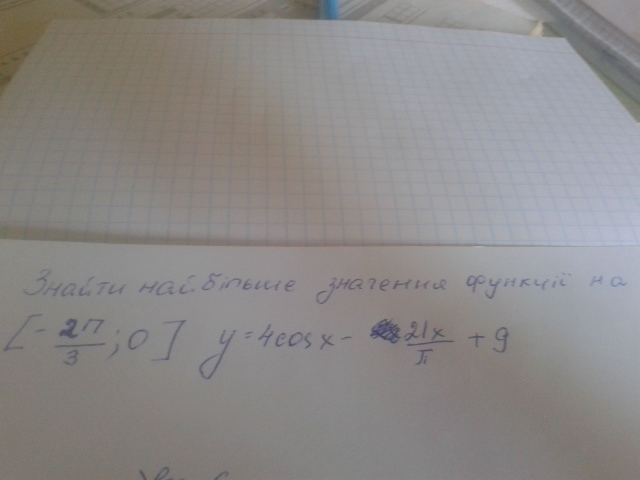 Знайти найбільше значення функції на
[-2π/3; 0] y = 4cosx - 21x/π + 9